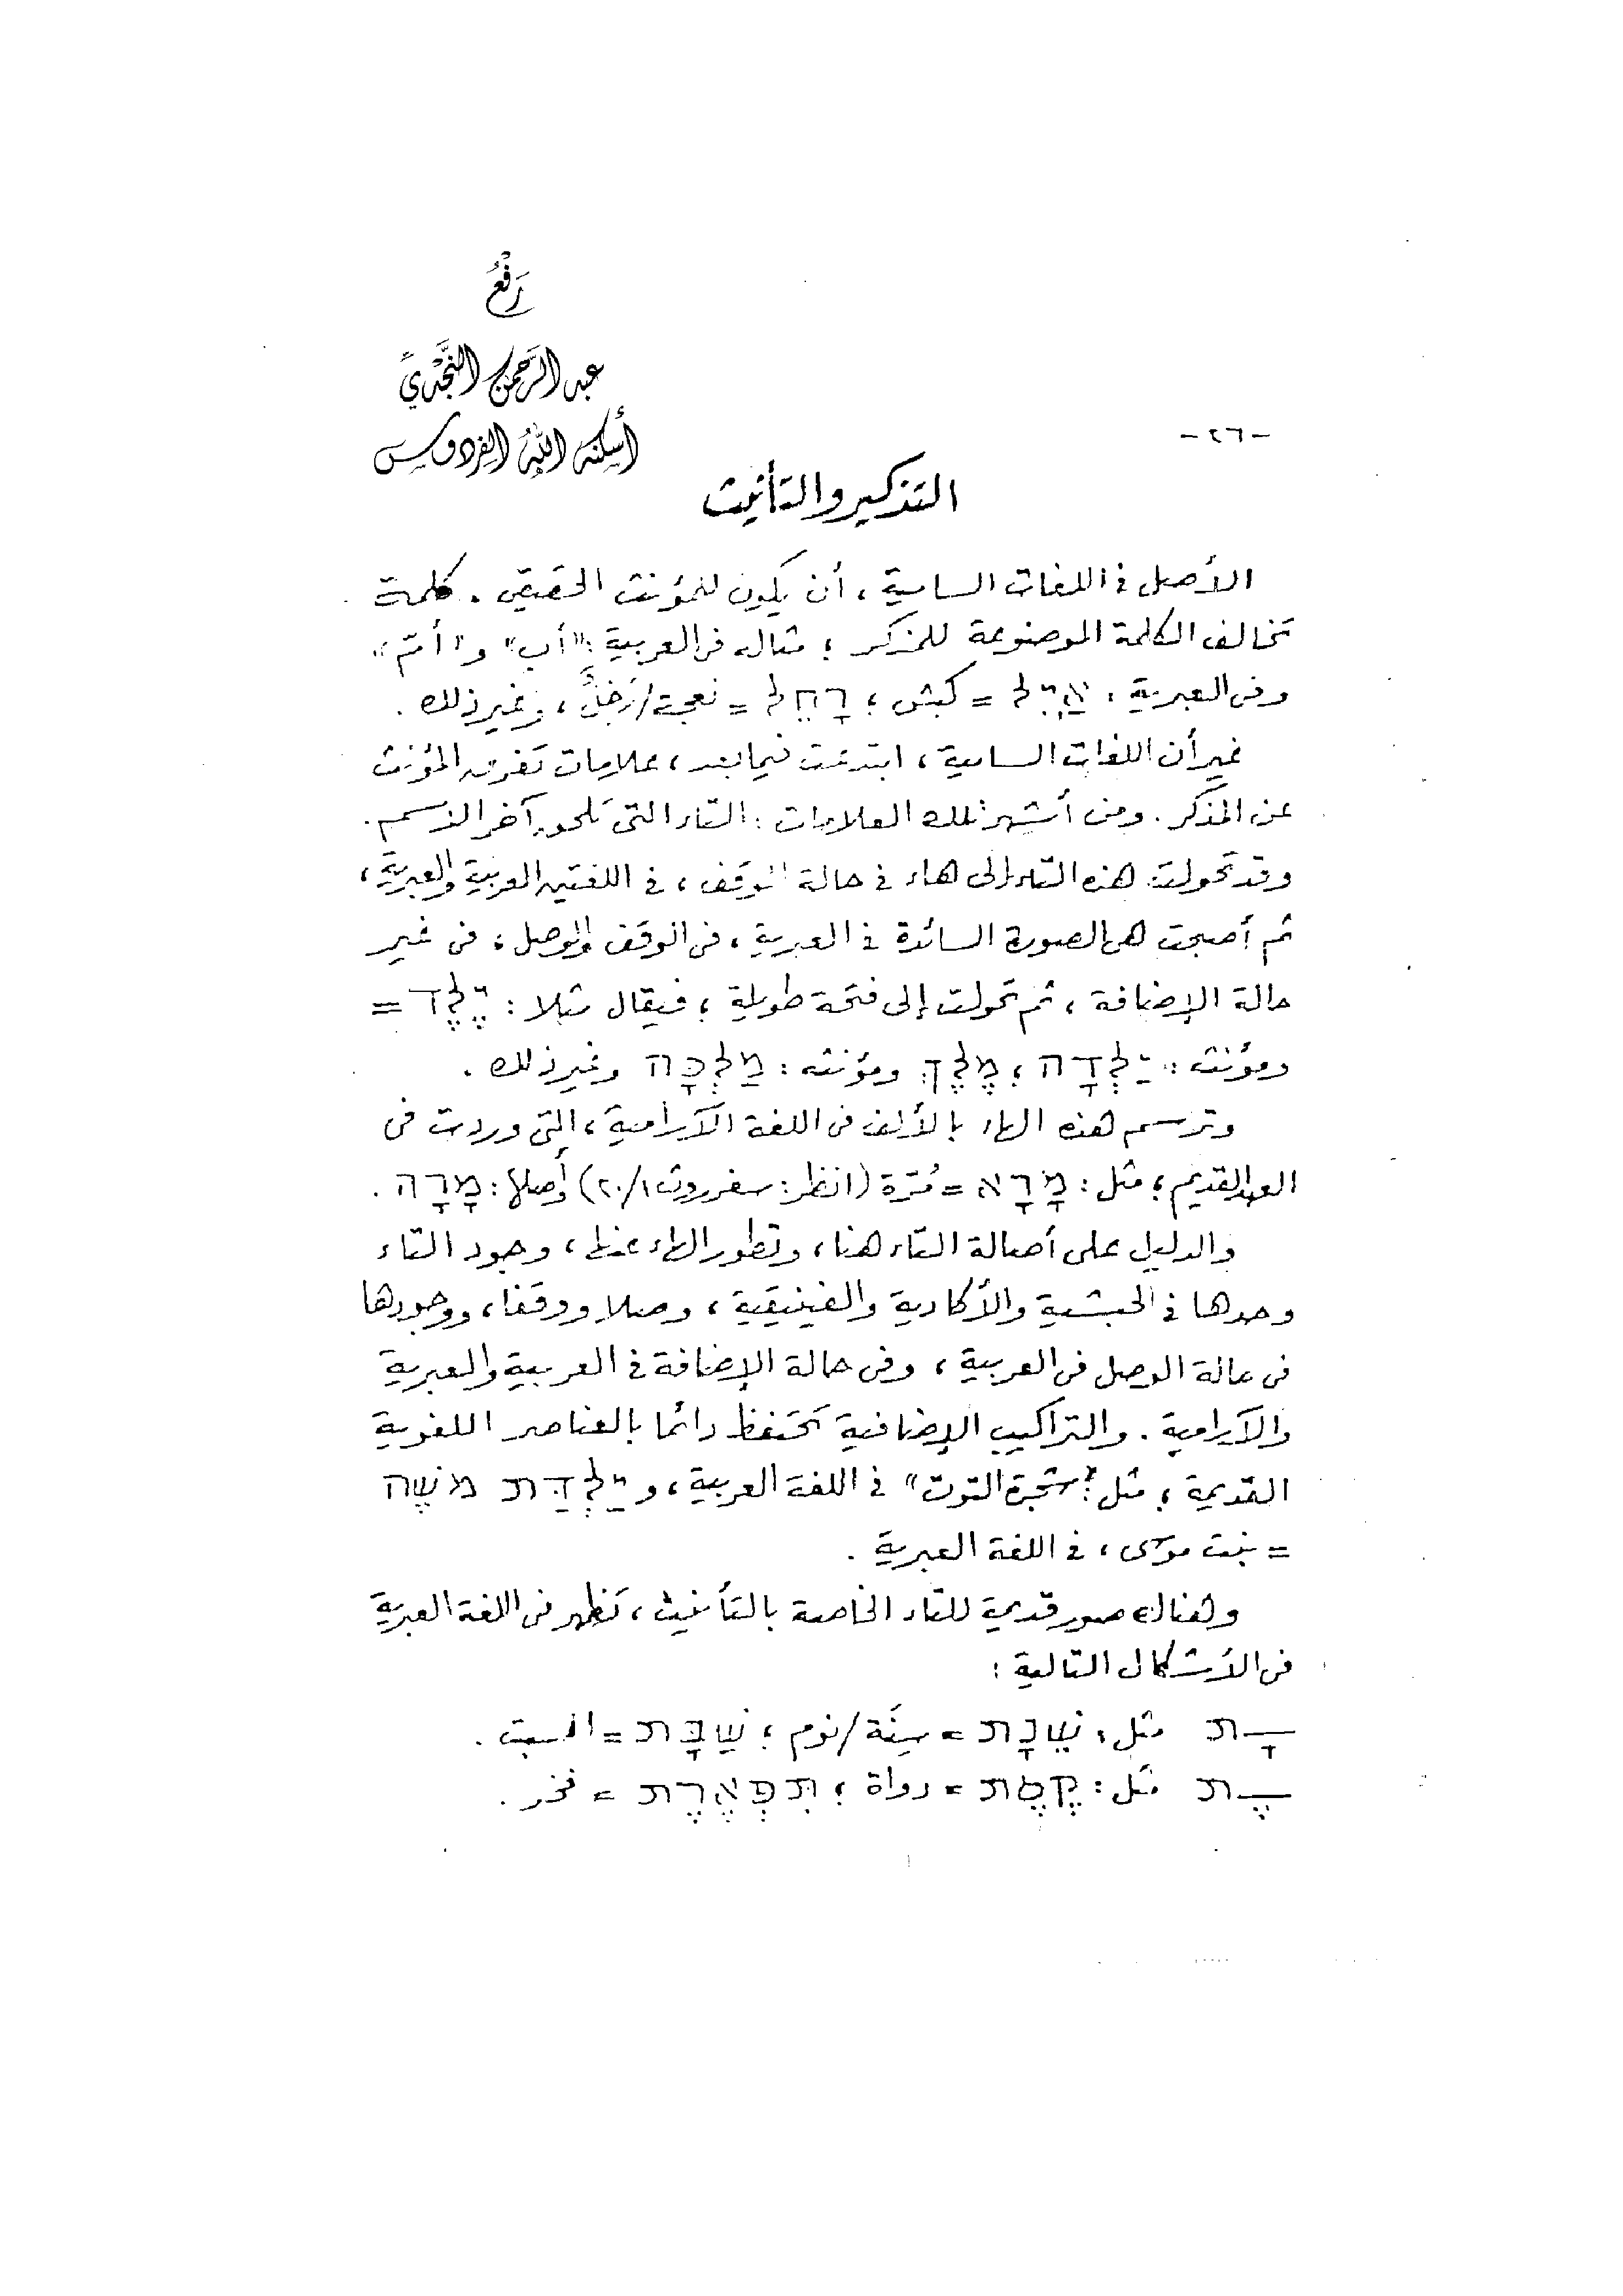 رَفْعُ
عبد الرَّحمن النَّجْدِيِّ
أسكنه اللهُ الفردوس
-٢٦-
التذكير والتأنيث
الأصل فى اللغات السامية، أن يكون للمؤنث الحقيقى. كلمة
تخالف الكلمة الموضوعة للمذكر؛ مثاله فى العربية: "أب" و"أم"
وفى العبرية: אַיִל = كبش؛ רָחֵל = نعجة/رَخِلٌ، وغير ذلك.
غير أن اللغات السامية، ابتدعت فيما بعد، علامات تفرق المؤنث
عن المذكر. ومن أشهر تلك العلامات: التاء التى تلحق آخر الاسم.
وقد تحولت هذه التاء إلى هاء فى حالة الوقف، فى اللغتين العربية والعبرية،
ثم أصبحت هى الصورة السائدة فى العبرية، فى الوقف والوصل، فى غير
حالة الإضافة، ثم تحولت إلى فتحة طويلة؛ فيقال مثلا: יֶלֶד =
ومؤنثه: יַלְדָּה؛ מֶלֶךְ ومؤنثه: מַלְכָּה وغير ذلك.
وترسم هذه الهاء بالألف فى اللغة الآرامية، التى وردت فى
العهد القديم؛ مثل: מָרָא = مُرّة (انظر: سفر روث ٢٠/١) وأصلها: מָרָה.
والدليل على أصالة التاء هنا، وتطور الهاء عنها، وجود التاء
وحدها فى الحبشية والأكادية والفينيقية، وصلا ووقفا، ووجودها
فى حالة الوصل فى العربية، وفى حالة الإضافة فى العربية والعبرية
والآرامية. والتراكيب الإضافية تحتفظ دائما بالعناصر اللغوية
القديمة؛ مثل: "شجرة التوت" فى اللغة العربية، و יַלְדַּת מֹשֶׁה
= بنت موسى، فى اللغة العبرية.
وهناك صور قديمة للتاء الخاصة بالتأنيث، تظهر فى اللغة العبرية
فى الأشكال التالية:
ـָת مثل: שֵׁנָת = سِنَة/نوم؛ שַׁבָּת = السبت.
ـֶת مثل: קֶסֶת = دواة؛ תִּפְאֶרֶת = فخر.